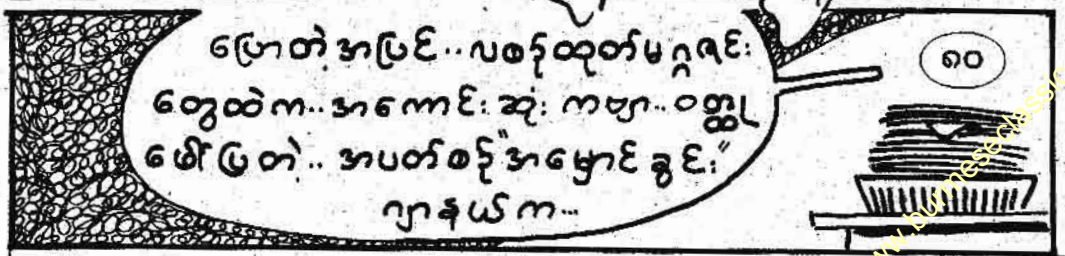 ပြောတဲ့အပြင်..လစဉ်ထုတ်မဂ္ဂဇင်း
တွေထဲက..အကောင်းဆုံး ကဗျာ..ဝတ္ထု
ဖော်ပြတဲ့..အပတ်စဉ်"အမှောင်ခွင်း"
ဂျာနယ်က...
၈၀
www.burmeseclassic